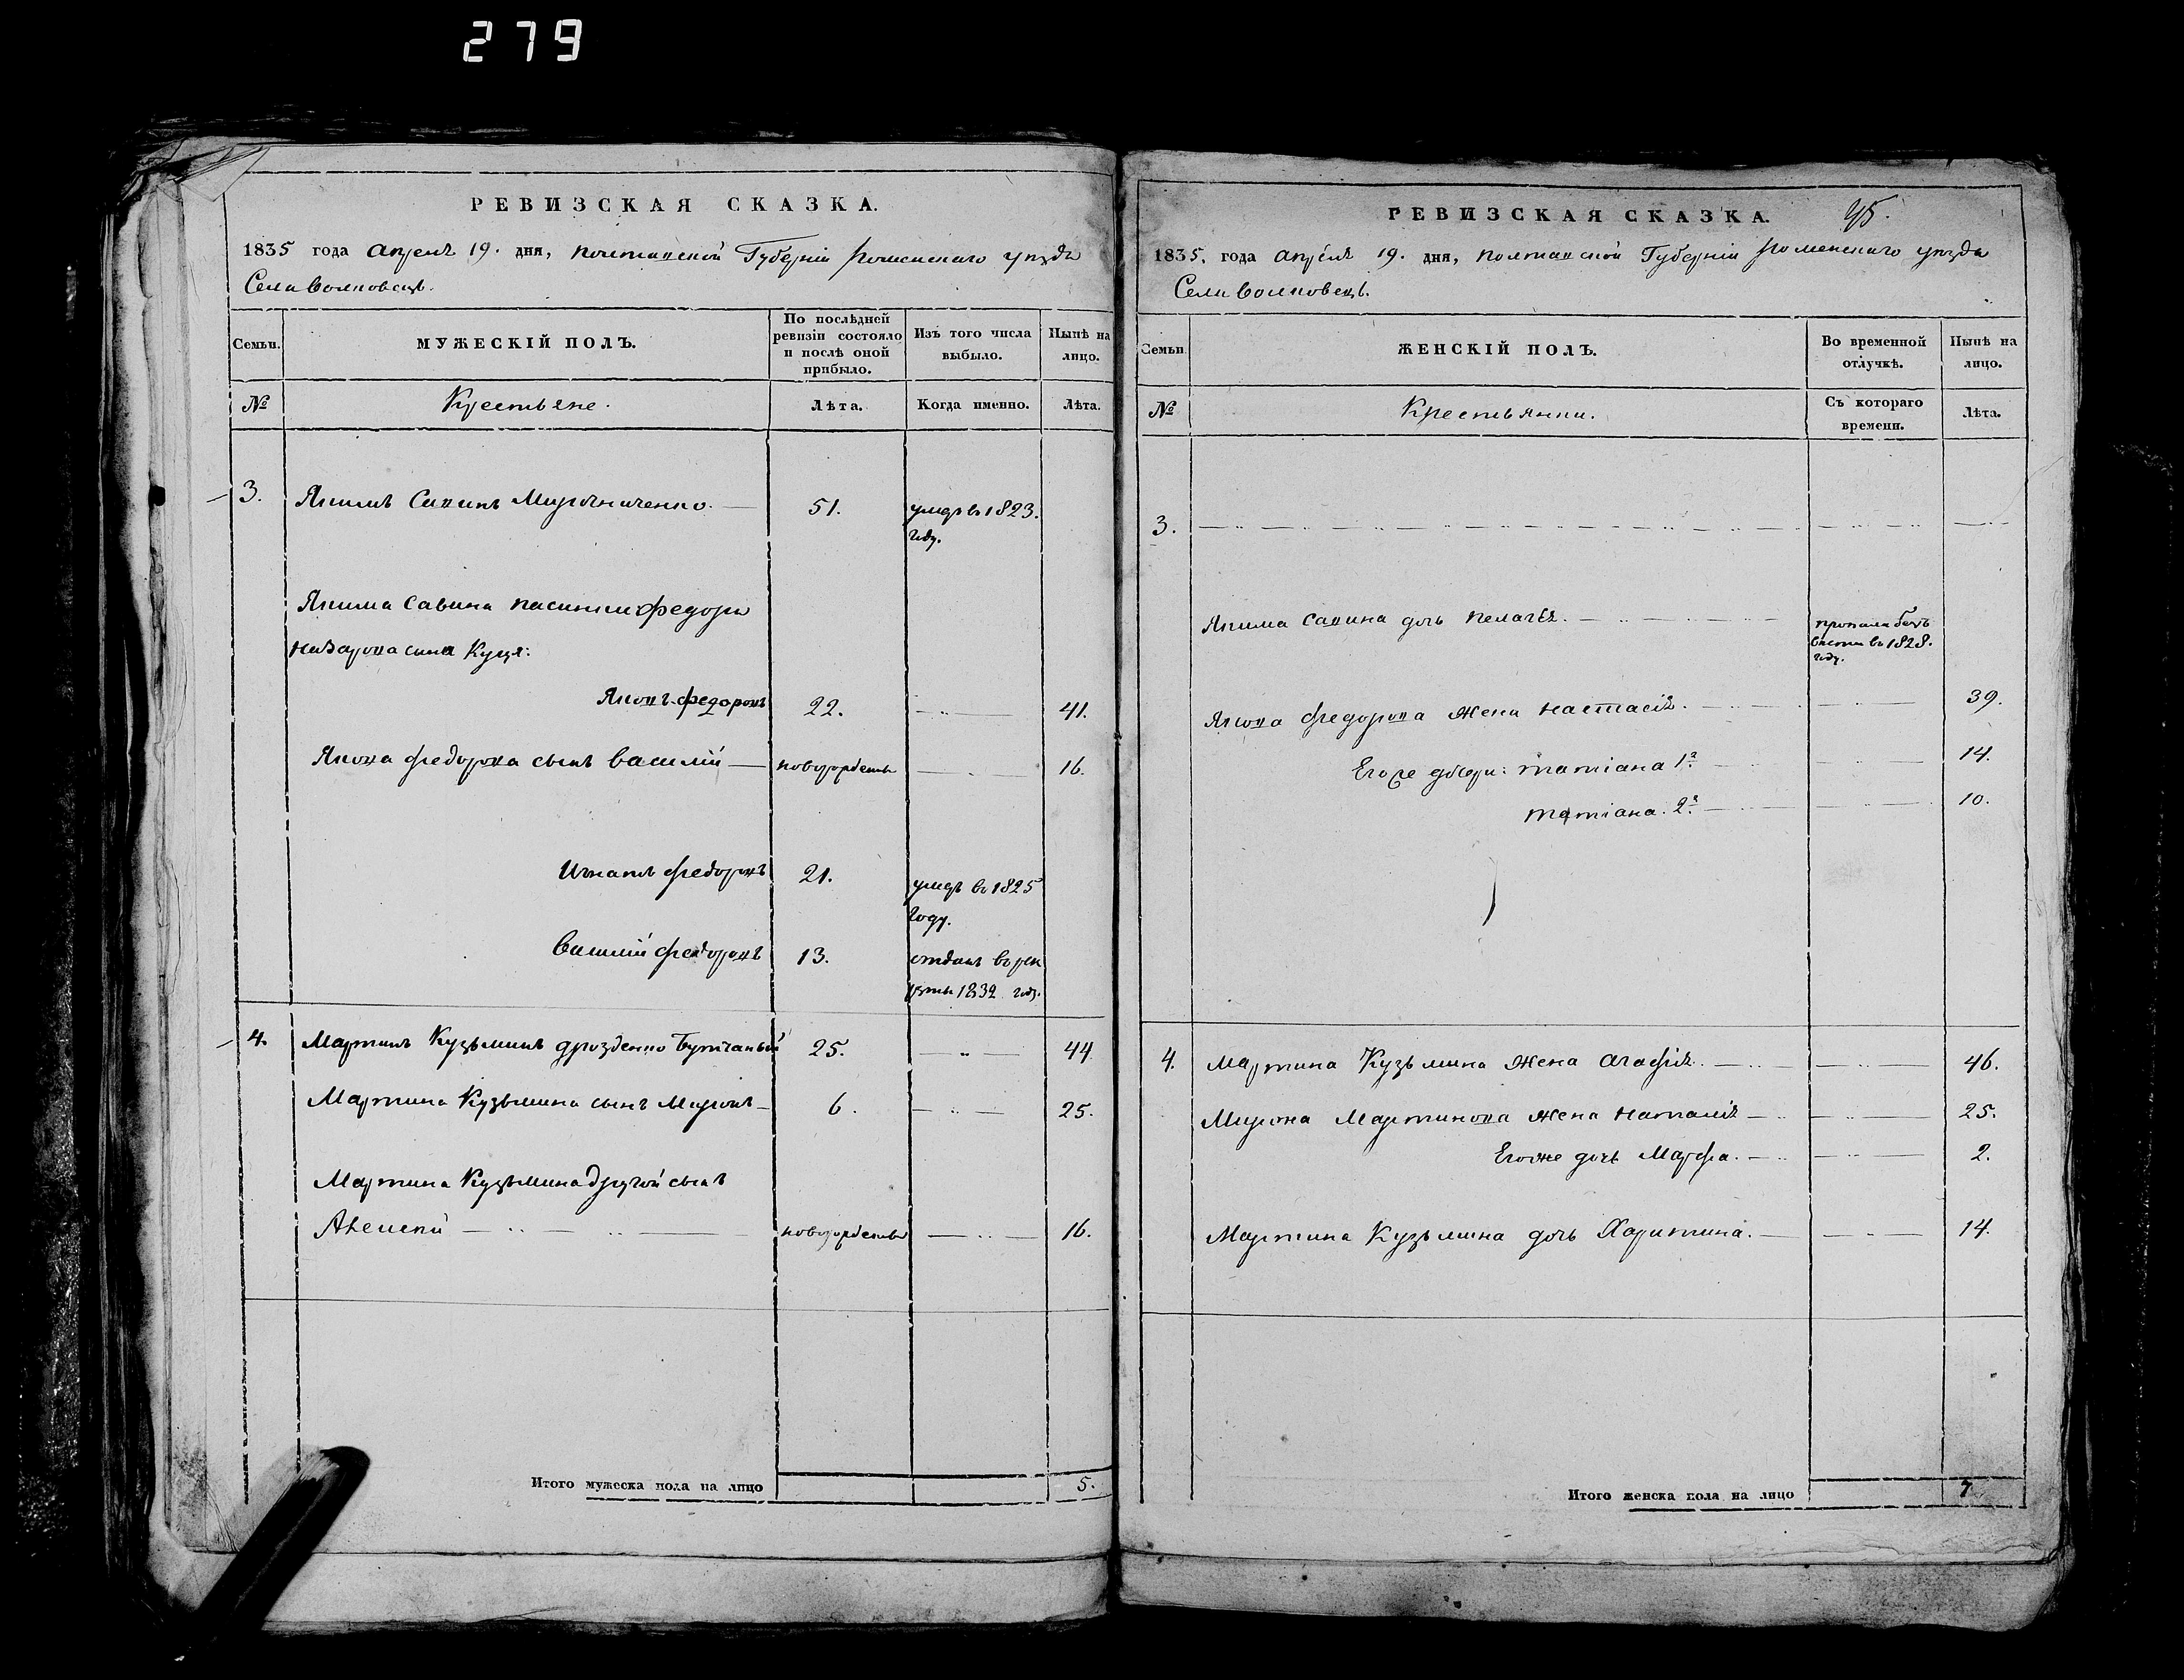 279
РЕВИЗСКАЯ СКАЗКА.
1835 года апреля 19. дня, полтавской Губерніи роменскаго уезда
Села Волковецъ.
Семьи. МУЖЕСКІЙ ПОЛЪ. По послѣдней ревизіи состояло и послѣ оной прибыло. Изъ того числа выбыло. Нынѣ на лицо.
№ Крестьяне. Лѣта. Когда именно. Лѣта.
3. Якимъ Савинъ Мирошниченко. 51. умеръ в 1823.
году.
Якима Савина пасинки федора
назарова сына Куця:
Яковъ федоровъ 22. 41.
Якова федорова сынъ василий новорожденъ 16.
Игнатъ федоровъ 21. умеръ в 1825
году.
василий федоровъ 13. отданъ в рек
руты 1832 году.
4. Мартинъ Кузьминъ дрозденко 25. 44
Мартина Кузьмина сынъ Миронъ 6. 25.
Мартина Кузьмина другой сынъ
Алексей новорожденъ 16.
Итого мужеска пола на лицо 5.
РЕВИЗСКАЯ СКАЗКА. 45.
1835. года апреля 19. дня, полтавской Губерніи роменскаго уезда
Села волковецъ.
Семьи ЖЕНСКІЙ ПОЛЪ. Во временной отлучкѣ. Нынѣ на лицо.
№ Крестьянки. Съ котораго времени. Лѣта.
3.
Якима Савина дочь пелагея. пропала безъ
вести в 1828.
году.
Якова федорова жена настасія. 39.
Егоже дочери: татіана 1я 14.
татіана. 2я 10.
4. Мартина Кузьмина жена агафія. 46.
Мирона Мартинова жена наталія 25.
Егоже дочь Марфа. 2.
Мартина Кузьмина дочь Харитина. 14.
Итого женска пола на лицо 7